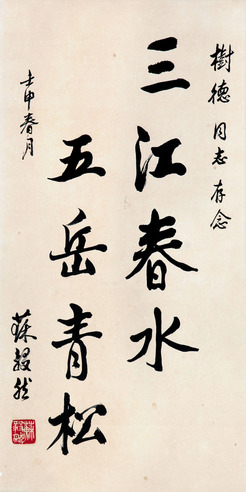 樹德同志存念
三江春水
五岳青松
壬申春月
蘇毅然